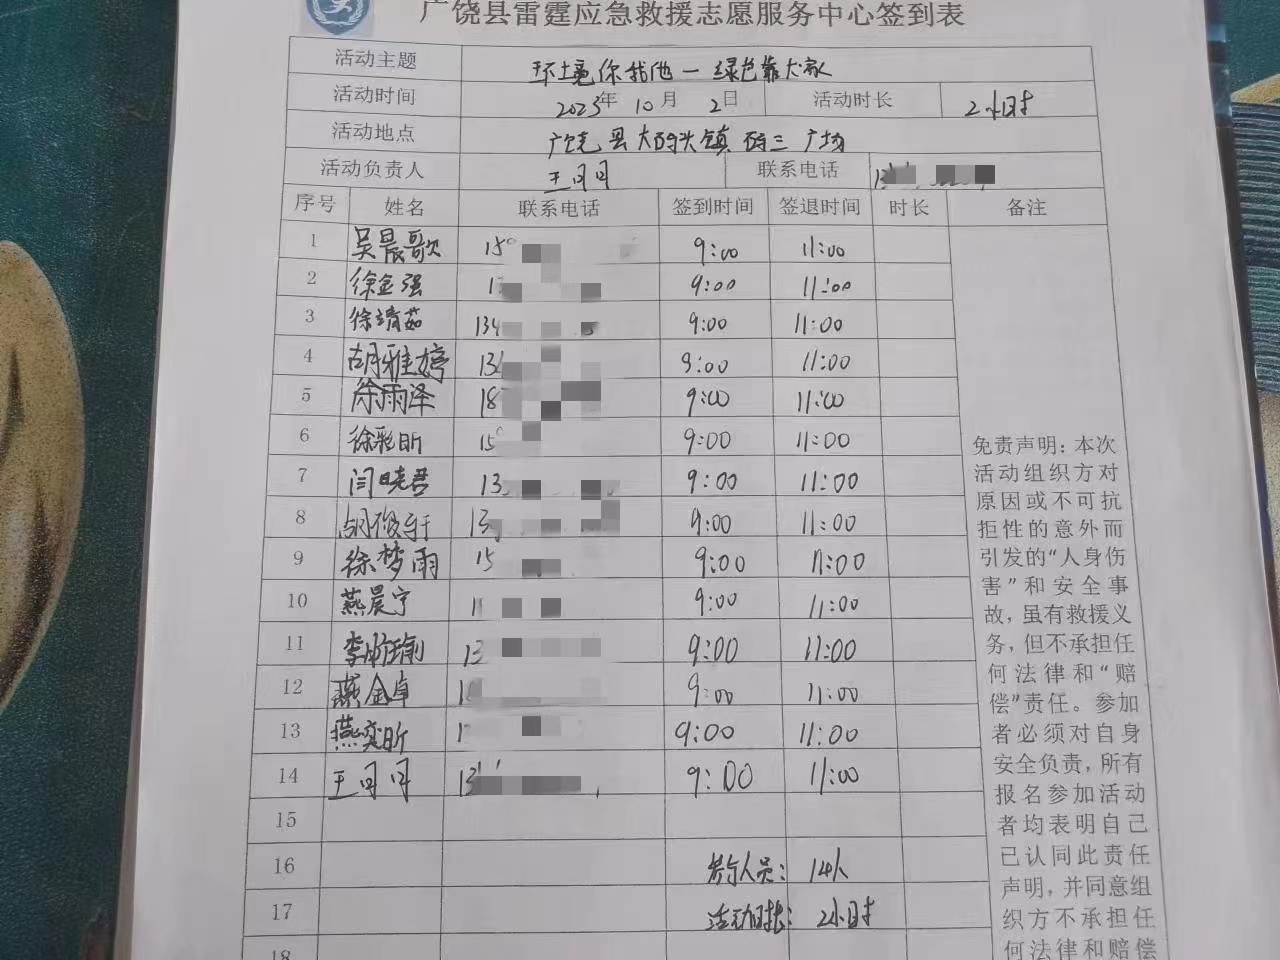 广饶县雷霆应急救援志愿服务中心签到表
活动主题 环境你我他一绿色靠大家
活动时间 2023年 10月 2日 活动时长 2小时
活动地点 广饶县大码头镇码三广场
活动负责人 王冈冈 联系电话
序号 姓名 联系电话 签到时间 签退时间 时长 备注
1 吴晨歌 15 9:00 11:00
2 徐金强 1 9:00 11:00
3 徐靖茹 134 9:00 11:00
4 胡雅婷 13 9:00 11:00
5 徐雨泽 18 9:00 11:00
6 徐彩昕 15 9:00 11:00
7 闫晓君 13 9:00 11:00
8 胡俊轩 13 9:00 11:00
9 徐梦雨 15 9:00 11:00
10 燕晨宇 1 9:00 11:00
11 李 瑜 13 9:00 11:00
12 燕金卓 1 9:00 11:00
13 燕奕昕 1 9:00 11:00
14 王冈冈 13 9:00 11:00
15
16 参与人员: 14人
17 活动时长: 2小时
18
免责声明:本次
活动组织方对
原因或不可抗
拒性的意外而
引发的“人身伤
害”和安全事
故,虽有救援义
务,但不承担任
何法律和“赔
偿”责任。参加
者必须对自身
安全负责,所有
报名参加活动
者均表明自己
已认同此责任
声明,并同意组
织方不承担任
何法律和赔偿